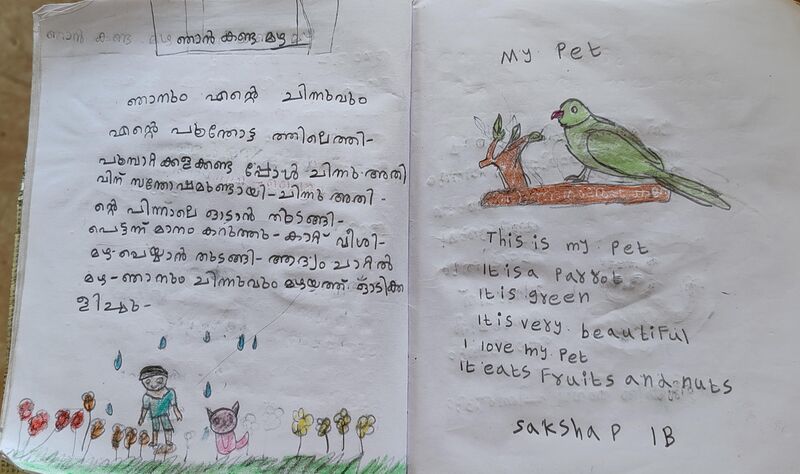 ഞാൻ കണ്ട മഴ ഞാൻ കണ്ട മഴ
ഞാനും എന്റെ ചിന്നുവും
എന്റെ പൂന്തോട്ട ത്തിലെത്തി-
പൂമ്പാറ്റകളെകണ്ട പ്പോൾ ചിന്നു അതി
വിന് സന്തോഷമുണ്ടായി-ചിന്നു അതി-
ന്റെ പിന്നാലെ ഓടാൻ തുടങ്ങി-
പെട്ടന്ന് മാനം കറുത്തു- കാറ്റ് വീശി-
മഴ-പെയ്യാൻ തുടങ്ങി- ആദ്യം ചാറ്റൽ
മഴ-ഞാനും ചിന്നുവും മഴയത്ത് ഓടിക്ക
ളിച്ചു-
My Pet
This is my pet
It is a Parrot
It is green
It is very beautiful
I love my Pet
It eats Fruits and nuts
Saksha P 1B